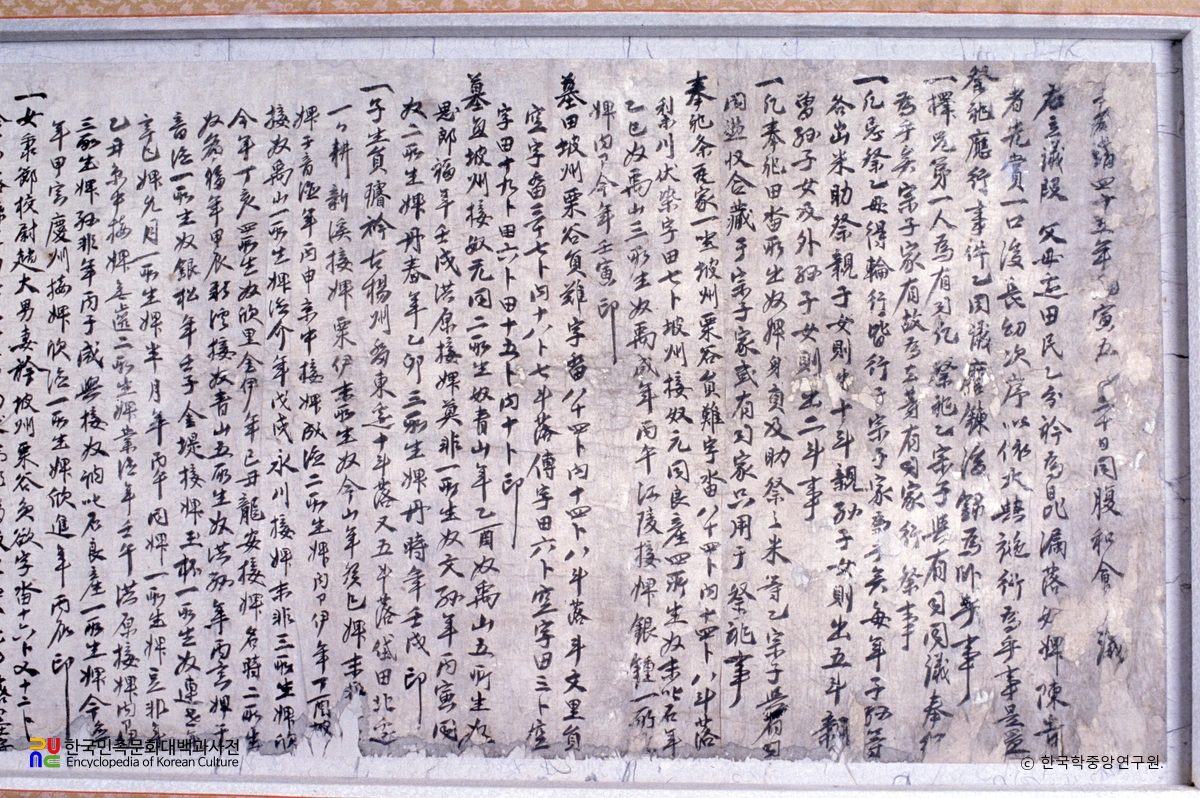 嘉靖四十五年丙寅五月二十日同腹和會 議
右立議段 父母邊田民乙分衿爲昆漏落奴婢陳告
者先賞一口後長幼次序以依大典施行爲乎事是置
祭祀應行事件乙同議磨鍊後錄爲臥乎事
一擇定第一人爲有司凡祭祀乙宗子與有司同議奉行
爲乎矣宗子家有故爲去等有司家行祭事
一凡忌祭乙毋得輪行皆行于宗子家爲乎矣每年子孫等
各出米助祭親子女則出十斗親孫子女則出五斗親
曾孫子女及外孫子女則出二斗事
一凡奉祀田畓所出奴婢身貢及助祭之米等乙宗子與有司
同監收合藏于宗子家或有司家只用于祭祀事
奉祀條瓦家一坐坡州栗谷員難字畓八十四卜內十四卜八斗落
梨川伏染字田七卜坡州接奴元同良産四所生奴末叱石年
乙巳奴禹山三所生奴禹成年丙午江陵接婢銀鍾一所
婢內卩今年壬寅 印
墓田坡州栗谷員難字畓八十四卜內十四卜八斗落斗文里員
空字畓三十七卜內十八卜七斗落傳字田六卜空字田三卜空
字田十九卜田六卜田十五卜內十卜印
墓直坡州接奴元同二所生奴青山年乙酉奴禹山五所生奴
郎福年壬戌洪原接婢莫非一所生奴文孫年丙寅同
奴二所生婢丹春年乙卯三所生婢丹時年壬戌 印
一子生員璿衿 楊州 東邊十斗落又五斗落 田北邊
一日耕新溪接婢栗伊 所生奴今山年癸巳婢末
婢子音德年丙申京中接婢成德二所生婢內卩伊年丁酉
接奴禹山一所生婢德介年戊戌永川接婢末非三所生婢欣
今年丁亥四所生奴欣里金伊年己丑龍安接婢名時二所生
奴 福年甲辰 接奴青山五所生奴洪孫年丙寅婢
音德一所生奴銀松年壬子金堤接婢玉杯一所生奴連
辛巳婢允月一所生婢半月年丙午同婢一所生婢 非年
乙丑京中接婢 二所生婢業德年壬午洪原接婢內卩
三所生婢孫非年丙子咸興接奴訥叱石良産一所生婢今
年甲寅慶州接婢欣德一所生婢欣進年丙辰 印
一女秉節校尉趙大男妻衿坡州栗谷員欲字畓六卜又十二卜
한국민족문화대백과사전
Encyclopedia of Korean Culture
© 한국학중앙연구원.